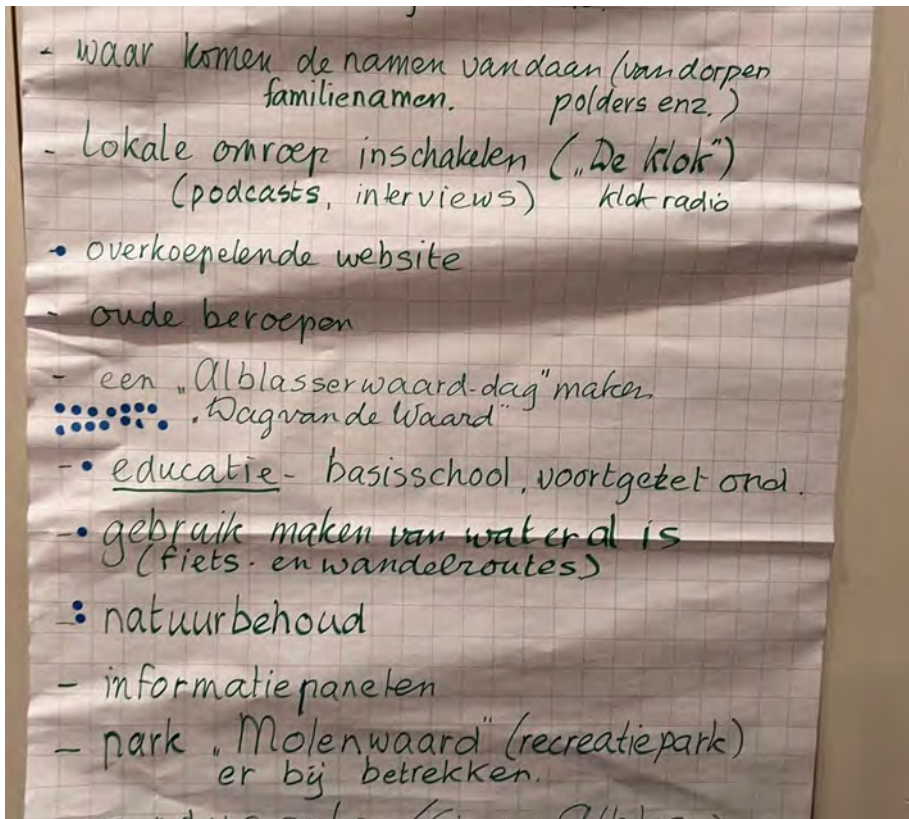 - waar komen de namen vandaan (van dorpen
familienamen. polders enz.)
- Lokale omroep inschakelen („De Klok")
(podcasts, interviews) klok radio
- overkoepelende website
- oude beroepen
- een „Alblasserwaard-dag" maken
„Dag van de Waard"
- educatie - basisschool, voortgezet ond.
- gebruik maken van wat er al is
(fiets- en wandelroutes)
- natuurbehoud
- informatiepanelen
- park „Molenwaard" (recreatiepark)
er bij betrekken.